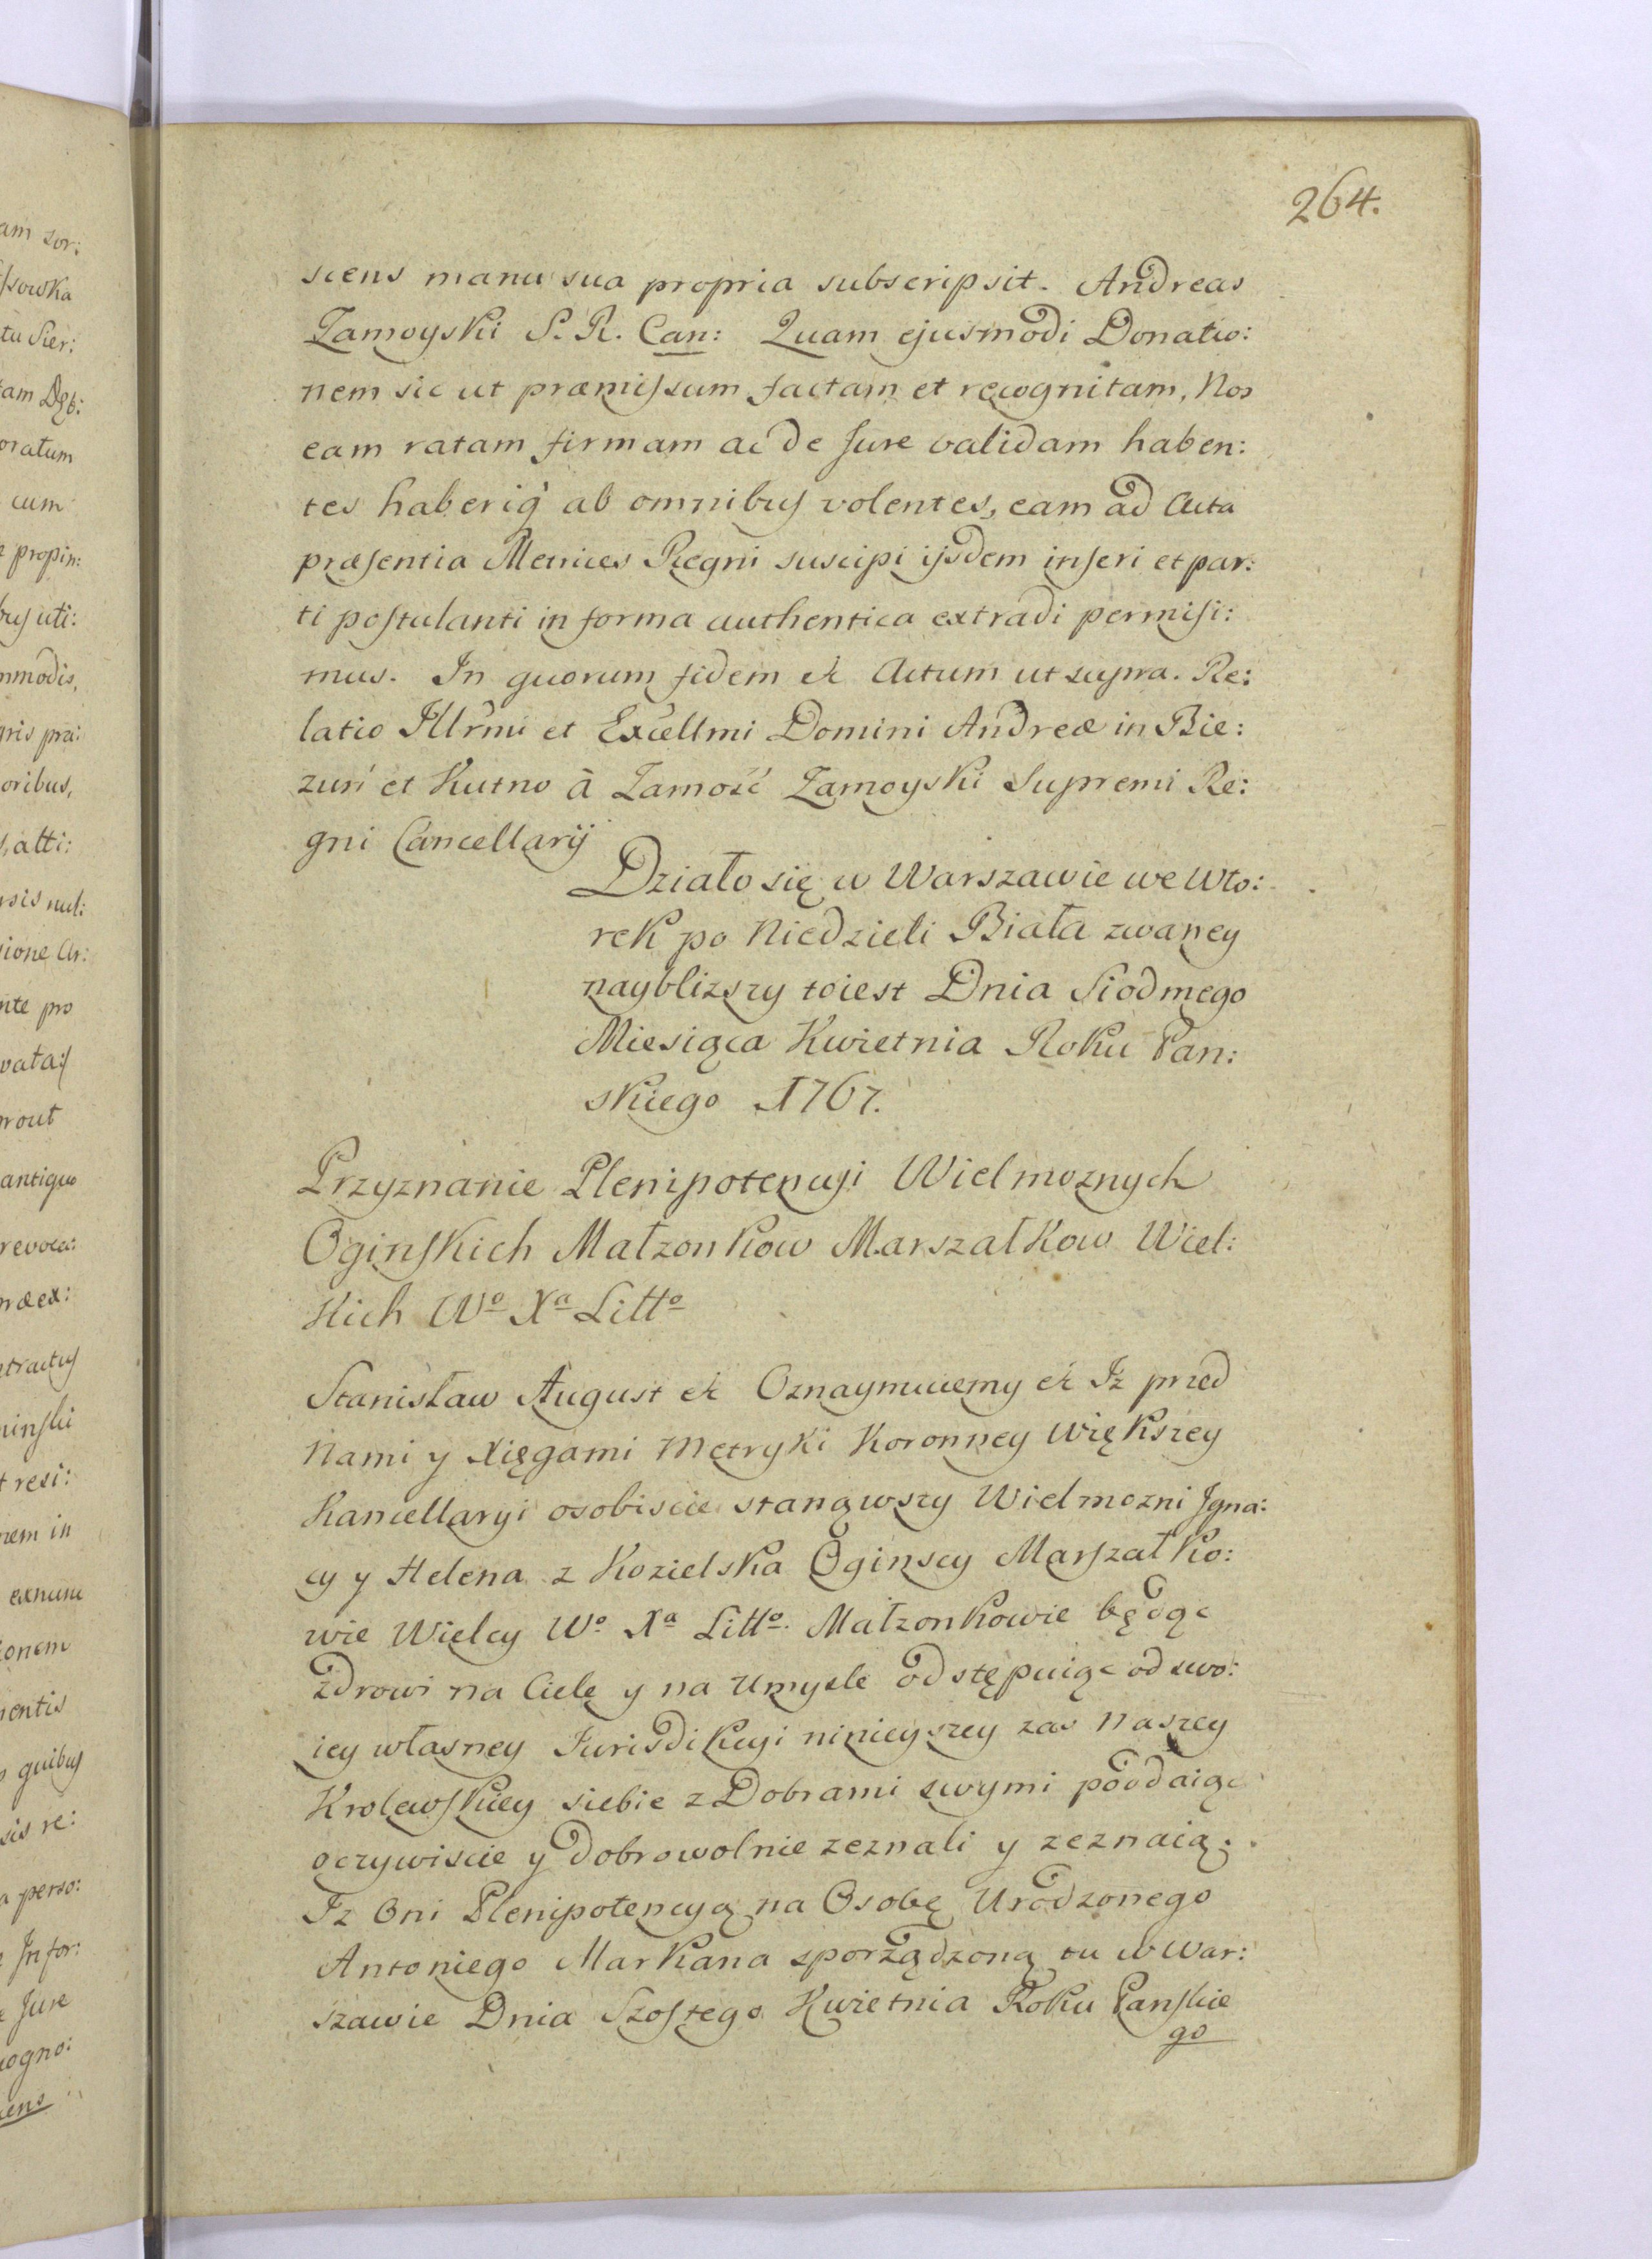 264.
scens manu sua propria subscripsit. Andreas
Zamoyski S. R. Can: Quam ejusmodi Donatio:
nem sic ut præmissum factam et recognitam, Nos
eam ratam firmam ac de Jure validam haben:
tes haberiq ab omnibus volentes, eam ad Acta
præsentia Metrices Regni suscipi ijsdem inseri et par:
ti postulanti in forma authentica extradi permisi:
mus. In quorum fidem et Actum ut supra. Re:
latio Illrmi et Excellmi Domini Andreæ in Bie:
zuń et Kutno à Zamość Zamoyski Supremi Re:
gni Cancellarij
Działo się w Warszawie we Wto:
rek po Niedzieli Biała zwaney
naybliższy toiest Dnia Siodmego
Miesiąca Kwietnia Roku Pan:
skiego 1767.
Przyznanie Plenipotencyi Wielmoznych
Oginskich Małzonkow Marszałkow Wiel:
kich Wo Xa Litto
Stanisław August et Oznaymuiemy et Iz przed
Nami y Xięgami Metryki Koronney Większey
Kancellaryi osobiscie stanąwszy Wielmozni Igna:
cy y Helena z Kozielska Oginscy Marszałko:
wie Wielcy Wo Xa Litto. Małzonkowie będąc
zdrowi na Ciele y na Umysle odstępuiąc od swo:
iey własney Jurisdikcyi ninieyszey zas Naszey
Krolewskiey siebie z Dobrami swymi poddaiąc
oczywiscie y dobrowolnie zeznali y zeznaią.
Iz Oni Plenipotencyą na Osobę Urodzonego
Antoniego Markana sporządzoną tu w War:
szawie Dnia Szostego Kwietnia Roku Panskie
go
am sor:
ssowska
tu Sier:
tam Dęb:
oratum
cum
propin:
bus uti:
mmodis,
gris præ:
oribus,
s, atti:
rsis nul:
sione Ar:
nte pro
rout
antiquo
revoca:
ræex:
ntractus
ninski
t resi:
nem in
onem
mentis
quibus
sis re:
a perso:
Infor:
Jure
cogno:
scens